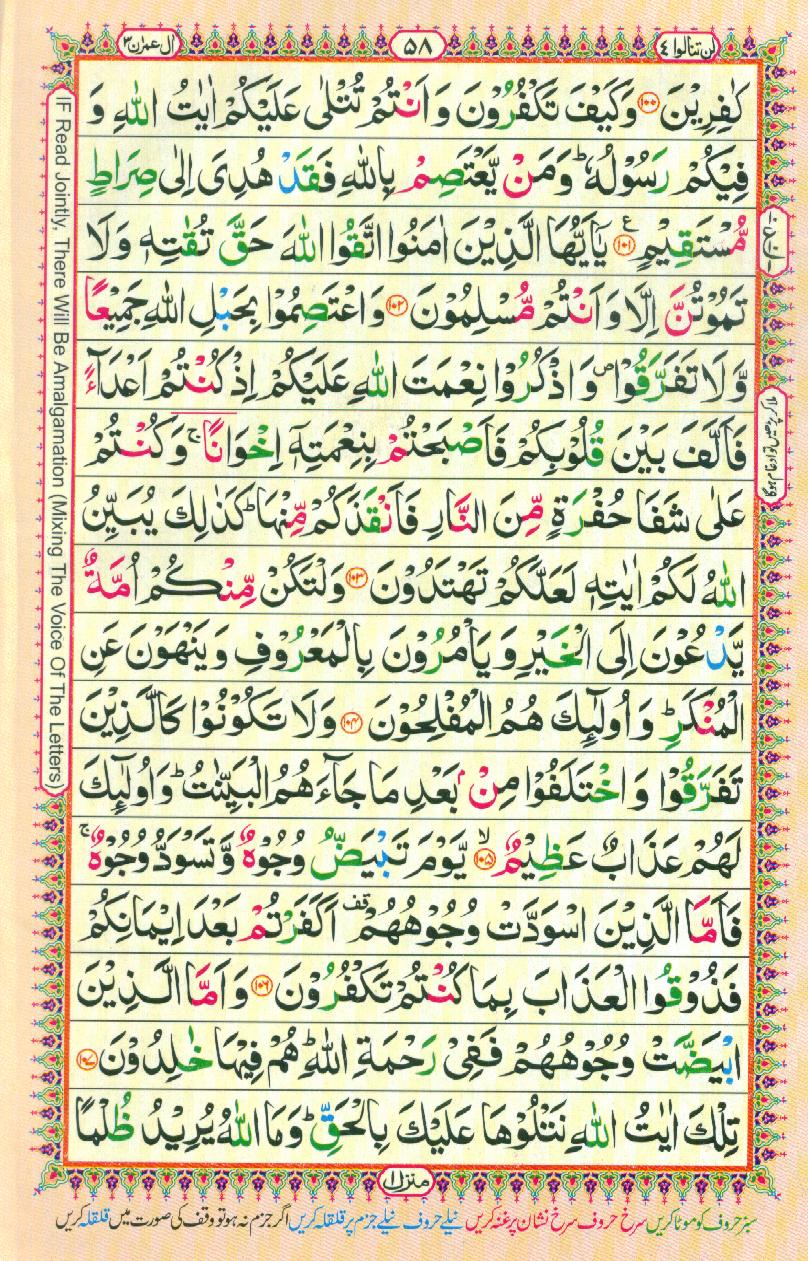 لن تنالوا ٤
٥٨
ال عمرٰن ٣
كٰفِرِيْنَ ﴿١٠٠﴾ وَكَيْفَ تَكْفُرُوْنَ وَاَنْتُمْ تُتْلٰى عَلَيْكُمْ اٰيٰتُ اللّٰهِ وَ
فِيْكُمْ رَسُوْلُهٗ ؕ وَمَنْ يَّعْتَصِمْ بِاللّٰهِ فَقَدْ هُدِىَ اِلٰى صِرَاطٍ
مُّسْتَقِيْمٍ ﴿١٠١﴾ ع يٰۤاَيُّهَا الَّذِيْنَ اٰمَنُوا اتَّقُوا اللّٰهَ حَقَّ تُقٰتِهٖ وَلَا
تَمُوْتُنَّ اِلَّا وَاَنْتُمْ مُّسْلِمُوْنَ ﴿١٠٢﴾ وَاعْتَصِمُوْا بِحَبْلِ اللّٰهِ جَمِيْعًا
وَّلَا تَفَرَّقُوْا ص وَاذْكُرُوْا نِعْمَتَ اللّٰهِ عَلَيْكُمْ اِذْ كُنْتُمْ اَعْدَآءً
فَاَلَّفَ بَيْنَ قُلُوْبِكُمْ فَاَصْبَحْتُمْ بِنِعْمَتِهٖۤ اِخْوَانًا ۚ وَكُنْتُمْ
عَلٰى شَفَا حُفْرَةٍ مِّنَ النَّارِ فَاَنْقَذَكُمْ مِّنْهَا ؕ كَذٰلِكَ يُبَيِّنُ
اللّٰهُ لَكُمْ اٰيٰتِهٖ لَعَلَّكُمْ تَهْتَدُوْنَ ﴿١٠٣﴾ وَلْتَكُنْ مِّنْكُمْ اُمَّةٌ
يَّدْعُوْنَ اِلَى الْخَيْرِ وَيَاْمُرُوْنَ بِالْمَعْرُوْفِ وَيَنْهَوْنَ عَنِ
الْمُنْكَرِ ؕ وَاُولٰٓئِكَ هُمُ الْمُفْلِحُوْنَ ﴿١٠٤﴾ وَلَا تَكُوْنُوْا كَالَّذِيْنَ
تَفَرَّقُوْا وَاخْتَلَفُوْا مِنْۢ بَعْدِ مَا جَآءَهُمُ الْبَيِّنٰتُ ؕ وَاُولٰٓئِكَ
لَهُمْ عَذَابٌ عَظِيْمٌ ﴿١٠٥﴾ ۙ يَّوْمَ تَبْيَضُّ وُجُوْهٌ وَّتَسْوَدُّ وُجُوْهٌ ۚ
فَاَمَّا الَّذِيْنَ اسْوَدَّتْ وُجُوْهُهُمْ قف اَكَفَرْتُمْ بَعْدَ اِيْمَانِكُمْ
فَذُوْقُوا الْعَذَابَ بِمَا كُنْتُمْ تَكْفُرُوْنَ ﴿١٠٦﴾ وَاَمَّا الَّذِيْنَ
ابْيَضَّتْ وُجُوْهُهُمْ فَفِىْ رَحْمَةِ اللّٰهِ ؕ هُمْ فِيْهَا خٰلِدُوْنَ ﴿١٠٧﴾
تِلْكَ اٰيٰتُ اللّٰهِ نَتْلُوْهَا عَلَيْكَ بِالْحَقِّ ؕ وَمَا اللّٰهُ يُرِيْدُ ظُلْمًا
منزل ١
سبز حروف کو موٹا کریں سرخ حروف سرخ نشان پر غنہ کریں نیلے حروف نیلے جزم پر قلقلہ کریں اگر جزم نہ ہو تو وقف کی صورت میں قلقلہ کریں
IF Read Jointly, There Will Be Amalgamation (Mixing The Voice Of The Letters)